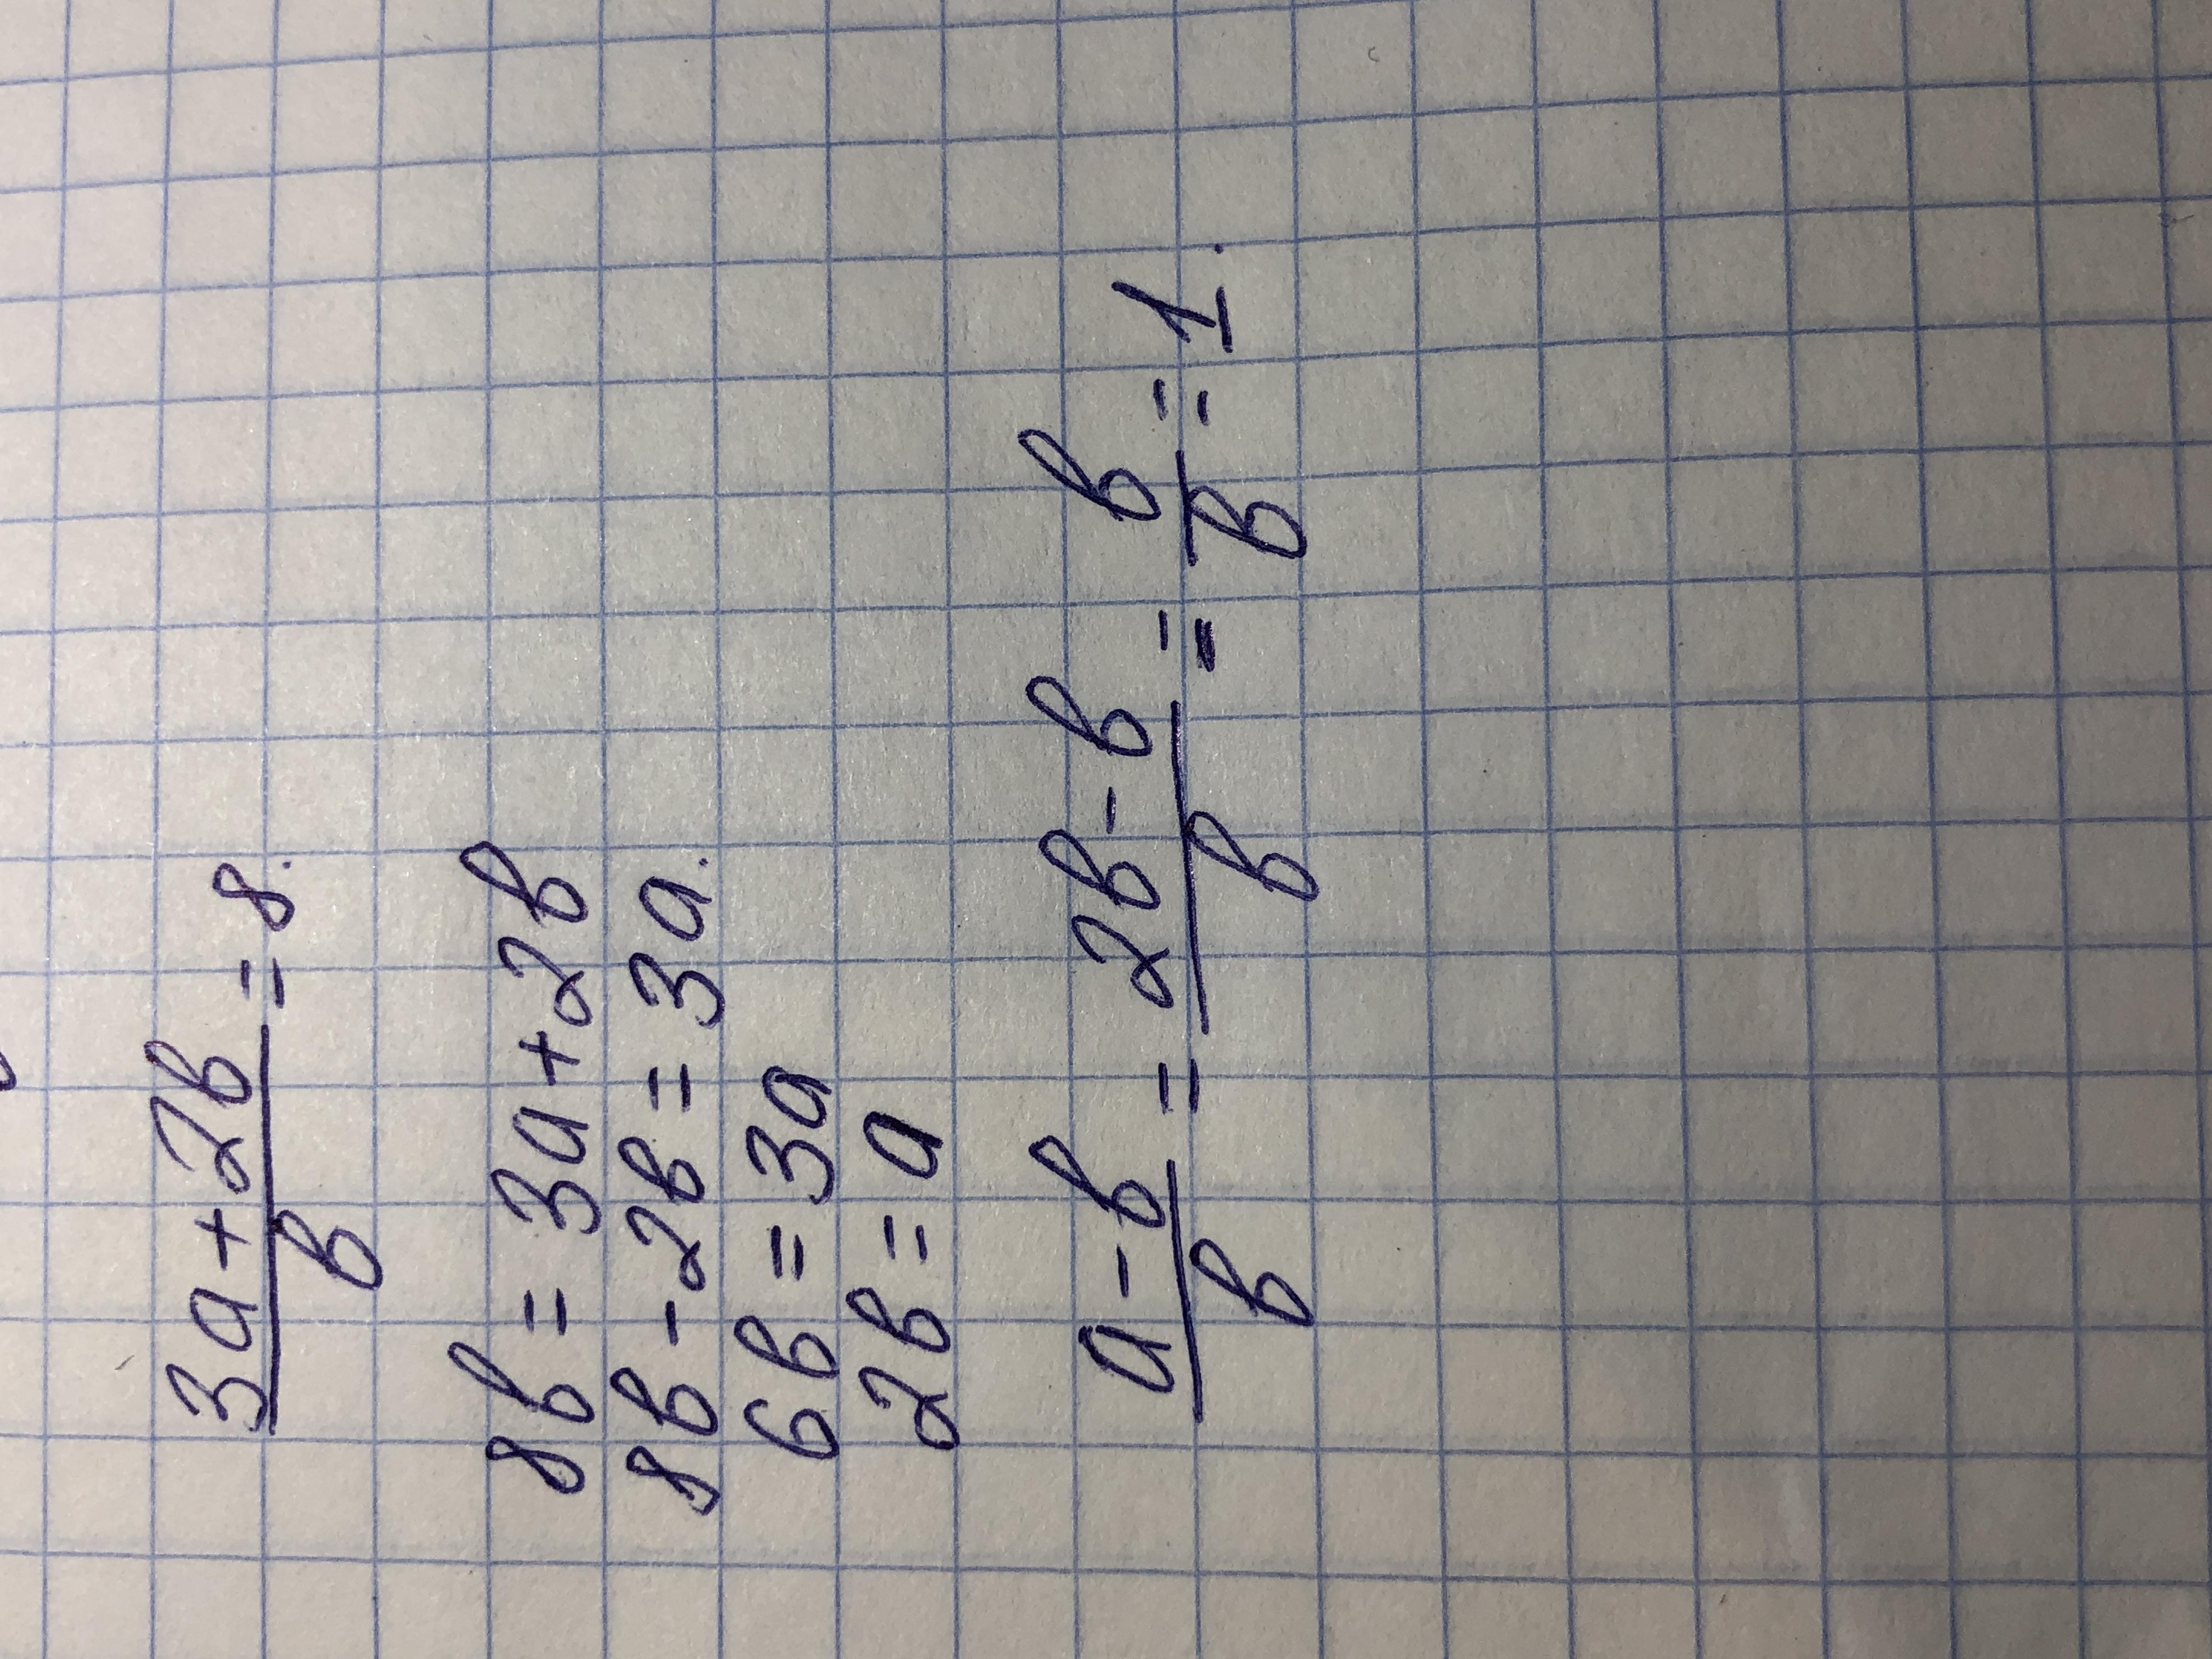 (3a+2b)/b = 8.
8b = 3a+2b
8b-2b = 3a.
6b = 3a
2b = a
(a-b)/b = (2b-b)/b = b/b = 1.